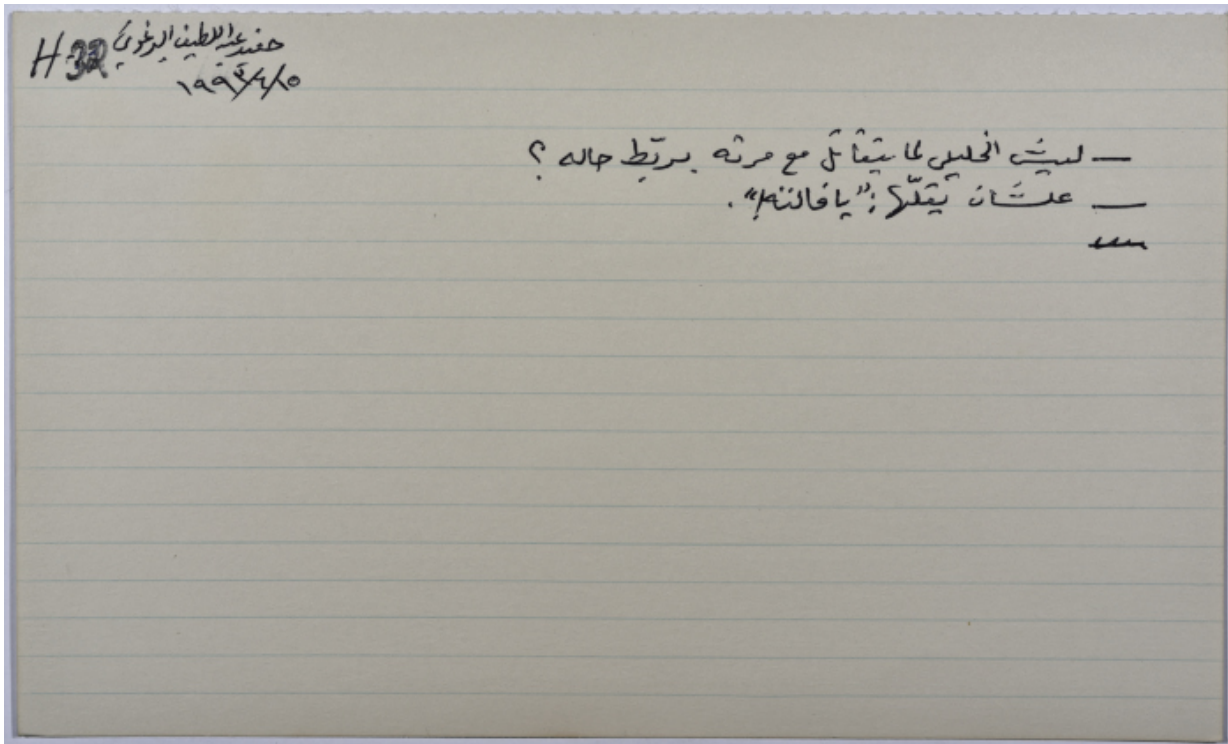 H 32 حفيد عبد اللطيف البرغوثي
١٩٩٣/٤/١٥
— ليش الخليلي لما يتقاتل مع مرته بربّط حاله ؟
— علشان يقلّها: "يا فالته!".